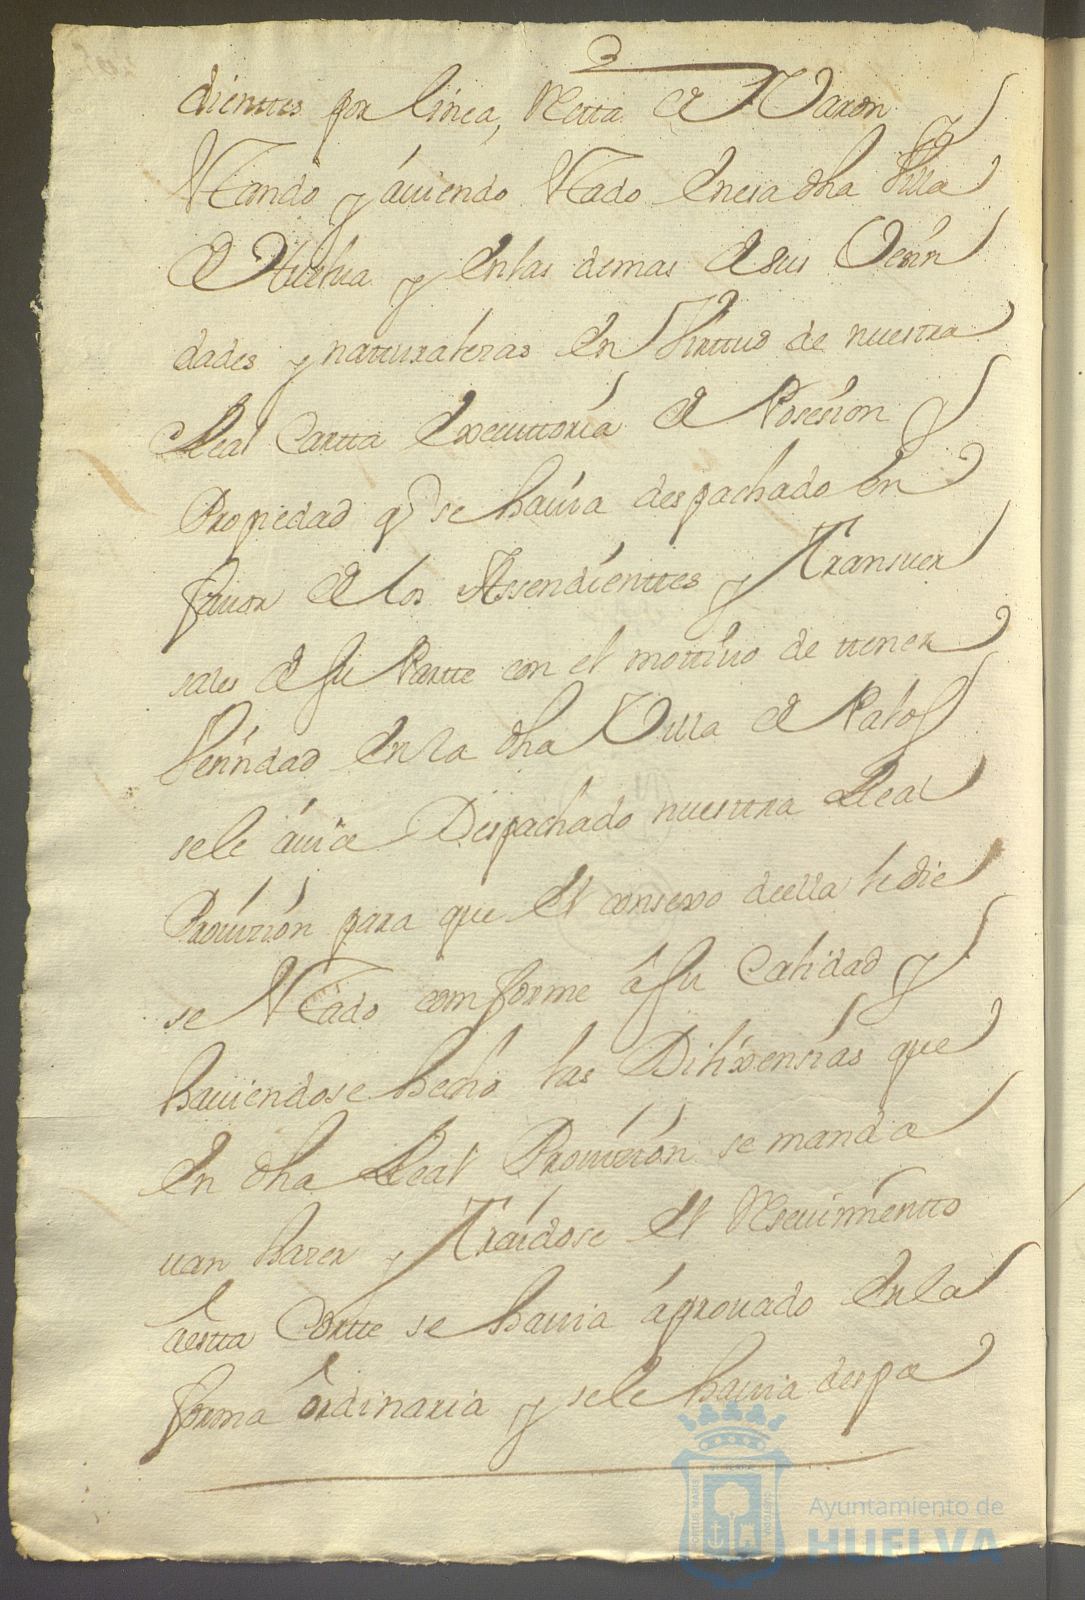 dienttes por línea Retta de Varon
y áuiendo estado En esa dha Villa
de Huelua y En las demas de sus Vesin
dades y natturalezas En Virttud de nuestra
Real Cartta Executtoria de Posesion y
Propiedad q̃ se hauia despachado en
fauor de los Assendienttes y Transuer
sales de su Partte con el mottiuo de ttener
Vesindad En la dha Villa de Palos
se le áuia Despachado nuesttra Real
Prouizión para que El consexo de ella le die
se Estado comforme á su Calidad y
hauiendose hecho las Dilixensias que
En dha Real Prouizión se manda
uan hazer y Traídose El Resiuimientto
áestta Cortte se hauia áprouado En la
forma ordinaria y se le hauia despa
Ayuntamiento de
HUELVA